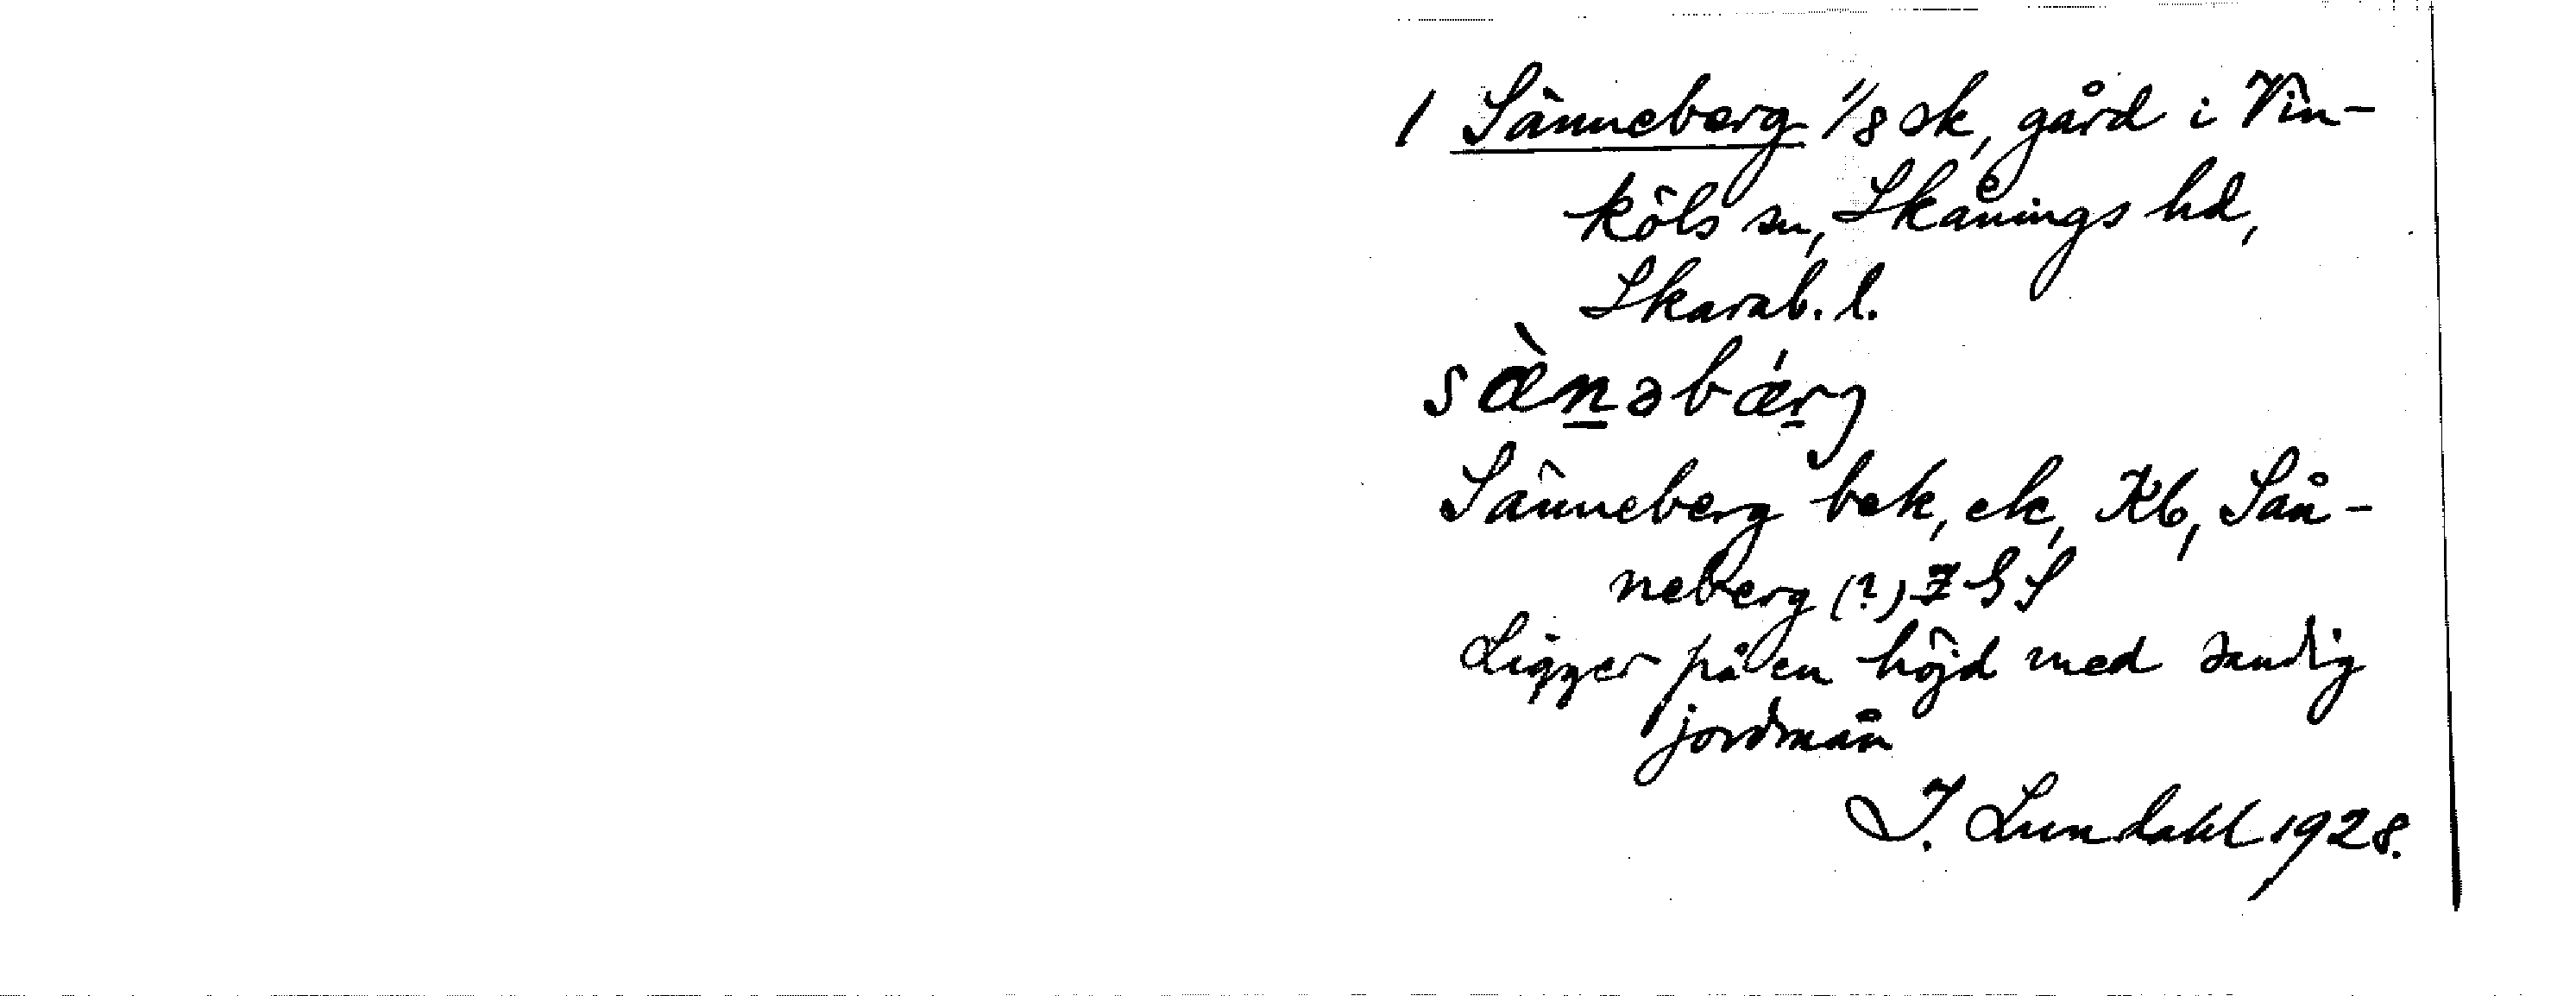 1 Sänneberg 1/8 sk, gård i Vin-
köls sn, Skånings hd,
Skarab. l.
sæ̀nəbǽrj
Sänneberg bok, ek, Kb, Sån-
neberg (?) JGS
Ligger på en höjd med sandig
jordmån
I. Lundahl 1928.